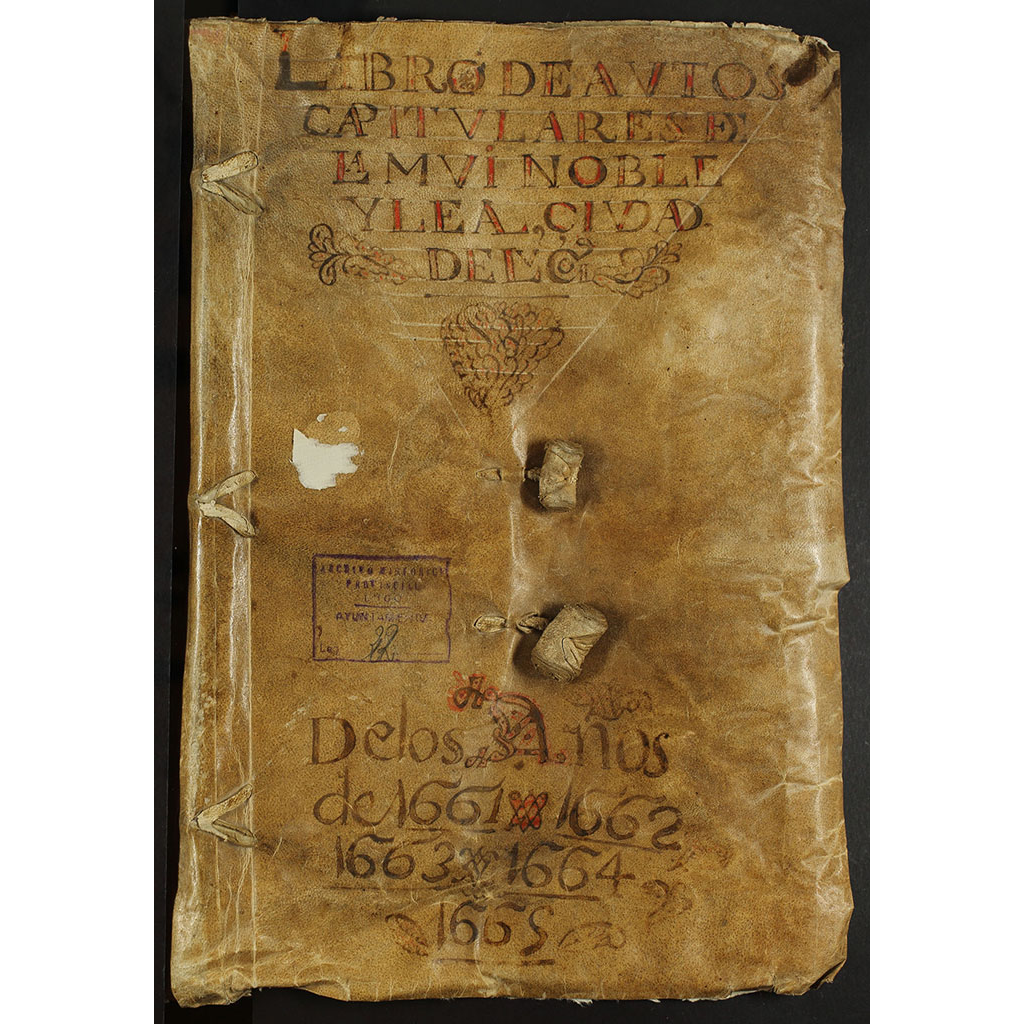 LIBRO DE AVTOS
CAPITVLARES DE
LA MVI NOBLE
Y LEAL CIVDAD
DE LVGO
ARCHIVO HISTORICO
PROVINCIAL
LUGO
AYUNTAMIENTO
Leg
22
Delos Años
de 1661 1662
1663 1664
1665